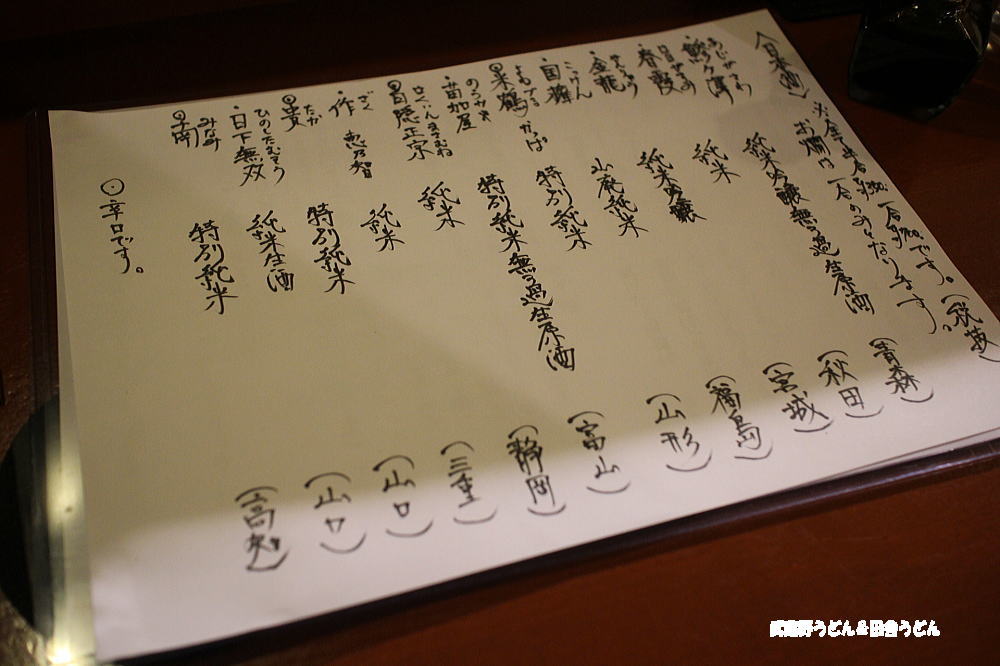 〈日本酒〉
※全て半合 一合 です。(税抜)
お燗は一合のみとなります。
あじがさわ
・鰺ヶ澤 純米吟醸無ろ過生原酒 (青森)
はるがすみ
・春霞 純米 (秋田)
きんりゅう
・金龍 純米吟醸 (宮城)
こっけん
・国権 山廃純米 (福島)
よねつる
米鶴 かっぱ 特別純米 (山形)
のうかや
・苗加屋 特別純米無ろ過生原酒 (富山)
はくいんまさむね
白隠正宗 純米 (静岡)
ざく
・作 恵乃智 純米 (三重)
たか
貴 特別純米 (山口)
ひのしたむそう
・日下無双 純米生酒 (山口)
みなみ
南 特別純米 (高知)
⊙辛口です。
武蔵野うどん&田舎うどん